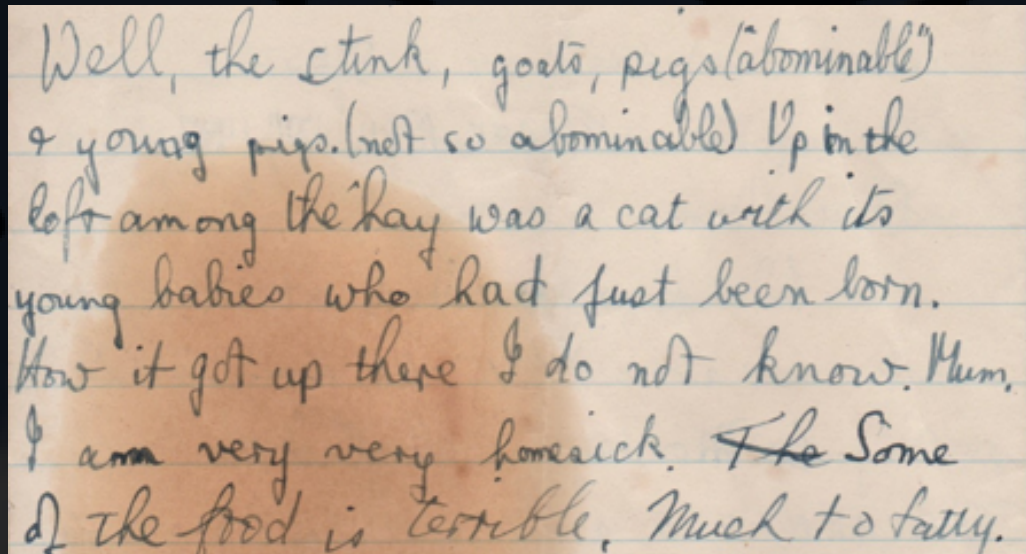 Well, the stink, goats, pigs ("abominable")
& young pigs. (not so abominable) Up in the
loft among the hay was a cat with its
young babies who had just been born.
How it got up there I do not know. Mum,
I am very very homesick. The Some
of the food is terrible. Much to fatty.